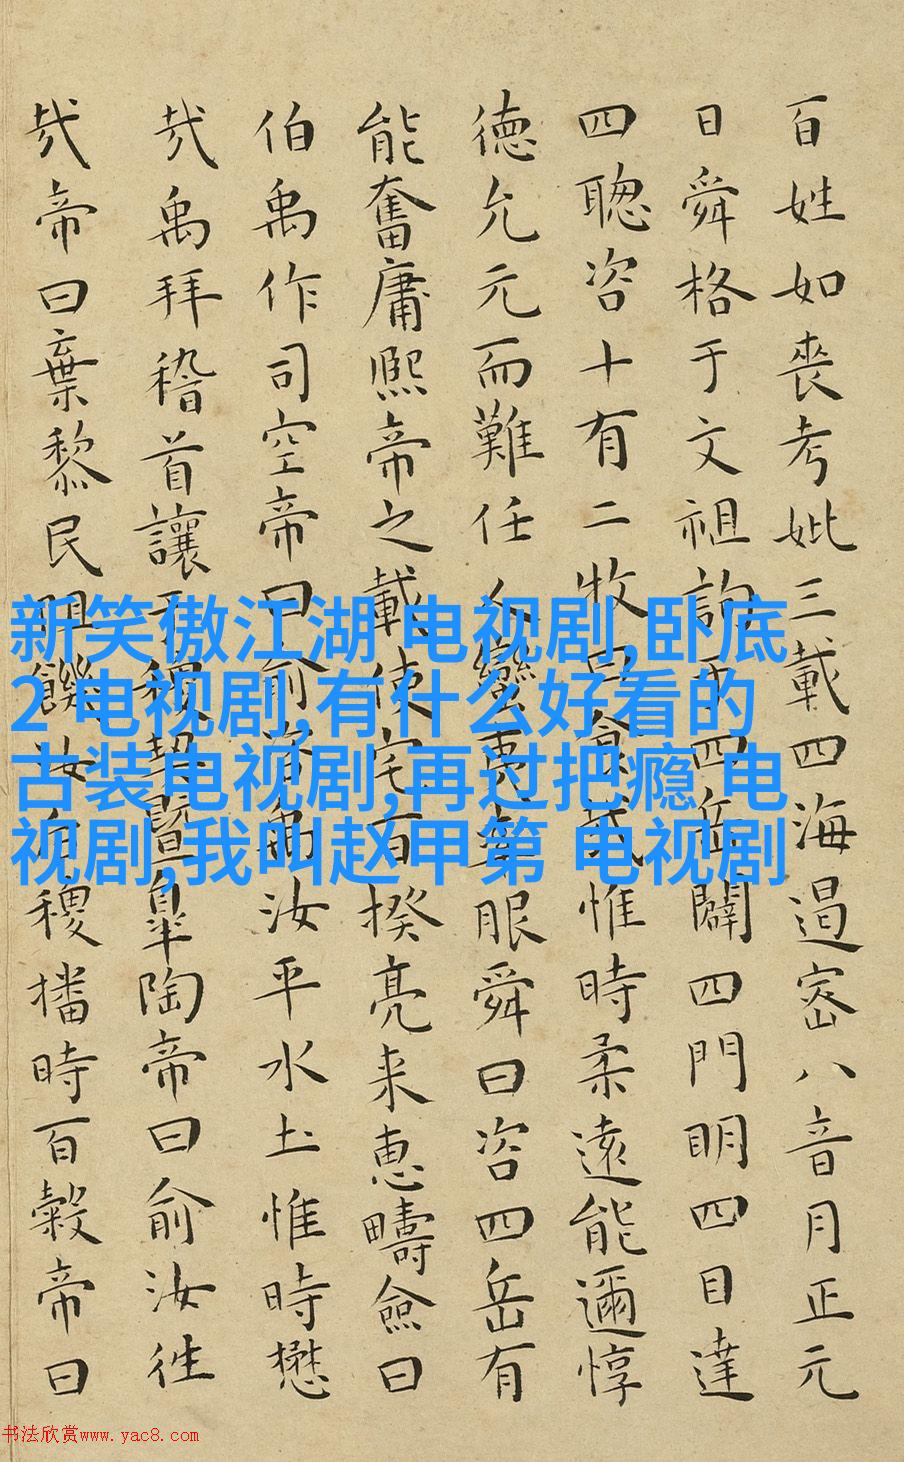 百姓如喪考妣三載四海遏密八音月正元
日舜格于文祖詢于四岳闢四門明四目達
四聰咨十有二牧曰食哉惟時柔遠能邇惇
德允元而難任人蠻夷率服舜曰咨四岳有
能奮庸熙帝之載使宅百揆亮采惠疇僉曰
伯禹作司空帝曰俞咨禹汝平水土惟時懋
哉禹拜稽首讓于稷契暨皋陶帝曰俞汝往
哉帝曰棄黎民阻饑汝后稷播時百穀帝曰
新笑傲江湖 电视剧,卧底
2 电视剧,有什么好看的
古装电视剧,再过把瘾 电
视剧,我叫赵甲第 电视剧
书法欣赏www.yac8.com